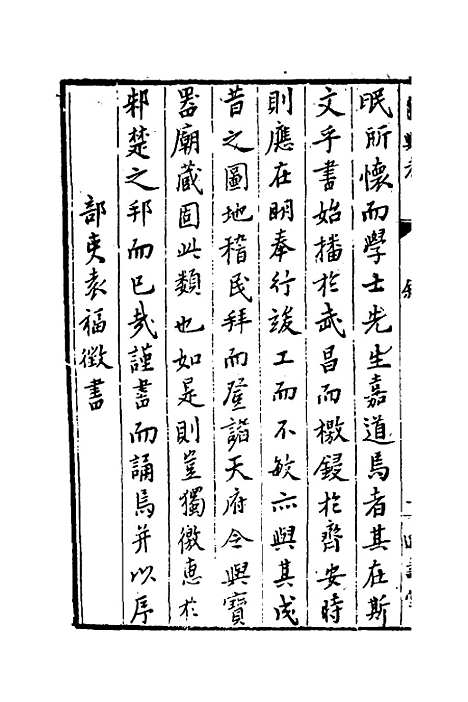 眠所懷而學士先生嘉道焉者其在斯
文乎書始播於武昌而檄鋟於齊安時
則應在明奉行竣工而不敏亦與其成
昔之圖地稽民拜而登諸天府令與寶
器廟藏固此類也如是則豈獨徼惠於
邾楚之邦而已哉謹書而誦焉并以序
部吏袁福徵書